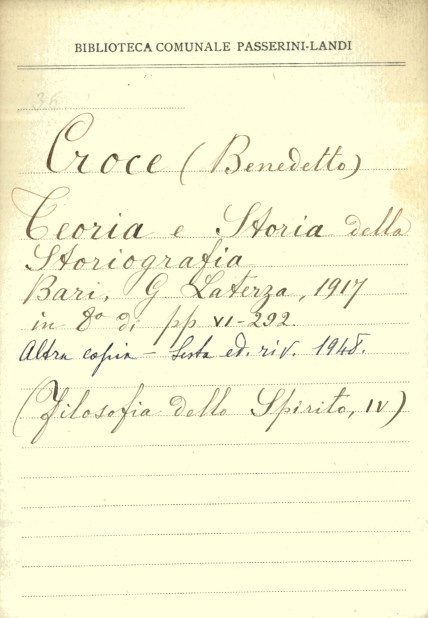 BIBLIOTECA COMUNALE PASSERINI-LANDI
36.
Croce (Benedetto)
Teoria e Storia della
Storiografia
Bari, G Laterza, 1917
in 8º di pp VI-292.
Altra copia - Sesta ed. riv. 1948.
(Filosofia dello Spirito, IV)